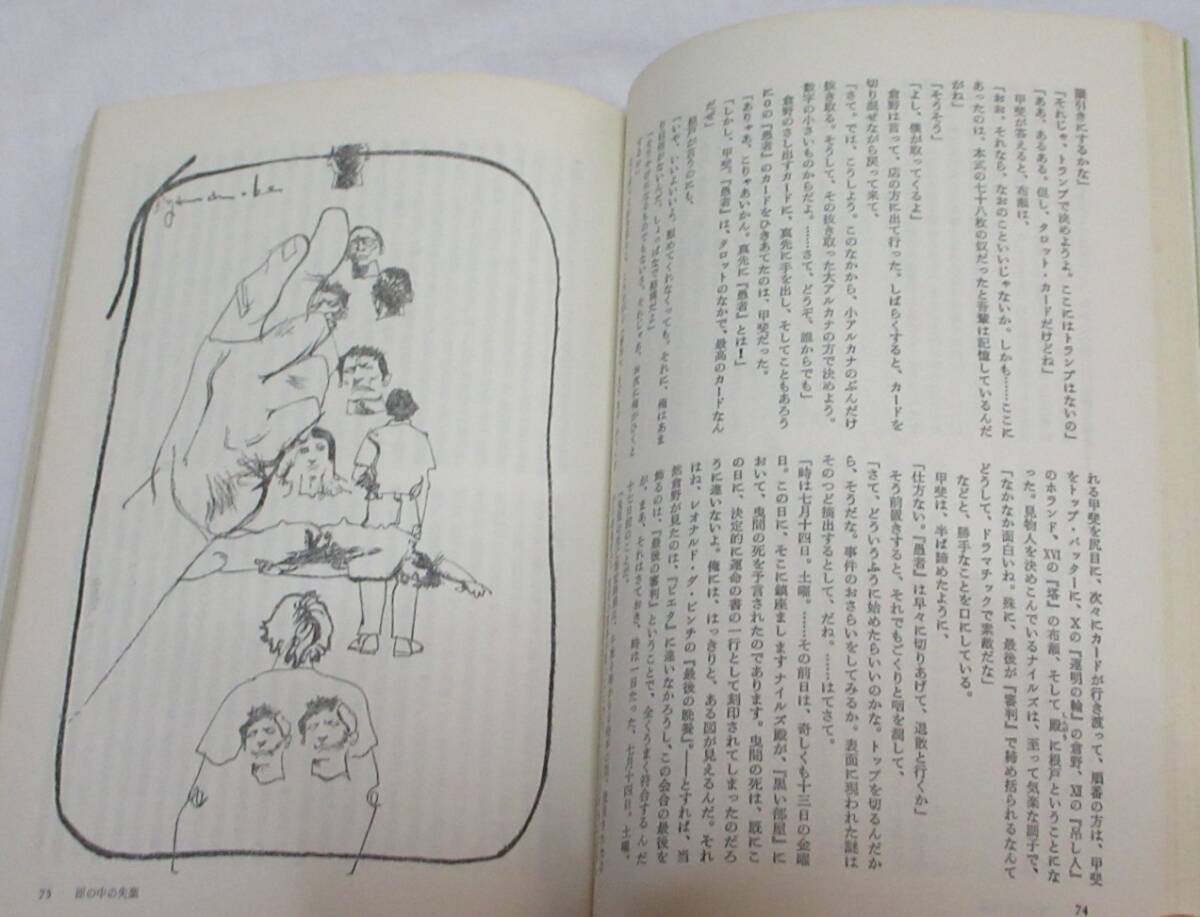 順引きにするかな」
「それじゃ、トランプで決めようよ。ここにはトランプはないの」
「ああ、あるある。但し、タロット・カードだけどね」
甲斐が答えると、布瀬は、
「おお、それなら、なおのこといいじゃないか。しかも……ここに
あったのは、本式の七十八枚の奴だったと吾輩は記憶しているんだ
がね」
「そうそう」
「よし、僕が取ってくるよ」
倉野は言って、店の方に出て行った。しばらくすると、カードを
切り混ぜながら戻って来て、
「さて。では、こうしよう。このなかから、小アルカナのぶんだけ
抜き取る。そうして、その抜き取った大アルカナの方で決めよう。
数字の小さいものからだよ。……さて、どうぞ、誰からでも」
倉野のさし出すカードに、真先に手を出し、そしてこともあろう
に0の『愚者』のカードをひきあてたのは、甲斐だった。
「ありゃあ、こりゃあいかん。真先に『愚者』とは!」
「しかし、甲斐。『愚者』は、タロットのなかで、最高のカードなん
だぜ」
根戸が言うのにも、
「いや、いいよいいよ。慰めてくれなくっても。それに、俺はあま
れる甲斐を尻目に、次々にカードが行き渡って、順番の方は、甲斐
をトップ・バッターに、Ⅹの『運命の輪』の倉野、Ⅻの『吊し人』
のホランド、ⅩⅥの『塔』の布瀬、そして殿に根戸ということにな
った。見物人を決めこんでいるナイルズは、至って気楽な調子で、
「なかなか面白いね。殊に、最後が『審判』で締め括られるなんて
どうして、ドラマチックで素敵だな」
などと、勝手なことを口にしている。
甲斐は、半ば諦めたように、
「仕方ない。『愚者』は早々に切りあげて、退散と行くか」
そう前置きすると、それでもごくりと咽を潤して、
「さて、どういうふうに始めたらいいのかな。トップを切るんだか
ら、そうだな。事件のおさらいをしてみるか。表面に現われた謎は
そのつど摘出するとして、だね。……はてさて。
「時は七月十四日。土曜。……その前日は、奇しくも十三日の金曜
日。この日に、そこに鎮座ましますナイルズ殿が、『黒い部屋』に
おいて、曳間の死を予言されたのであります。曳間の死は、既にこ
の日に、決定的に運命の書の一行として刻印されてしまったのだろ
うに違いないよ。俺には、はっきりと、ある図が見えるんだ。それ
はね、レオナルド・ダ・ビンチの『最後の晩餐』。――とすれば、当
然倉野が見たのは、『ピエタ』に違いなかろうし、この会合の最後を
飾るのは、『最後の審判』ということで、全くうまく符合するんだ
が、まあ、それはさておき、時は一日たった、七月十四日。土曜。
74
75 匣の中の失楽